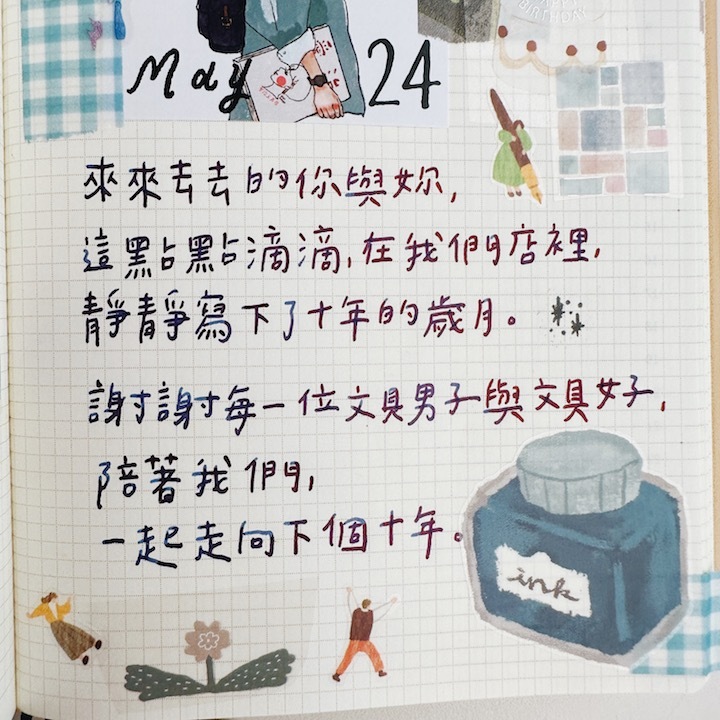 BIRTHDAY
May 24
來來去去的你與妳,
這點點滴滴,在我們店裡,
靜靜寫下了十年的歲月。
謝謝每一位文具男子與文具女子,
陪著我們,
一起走向下個十年。
ink